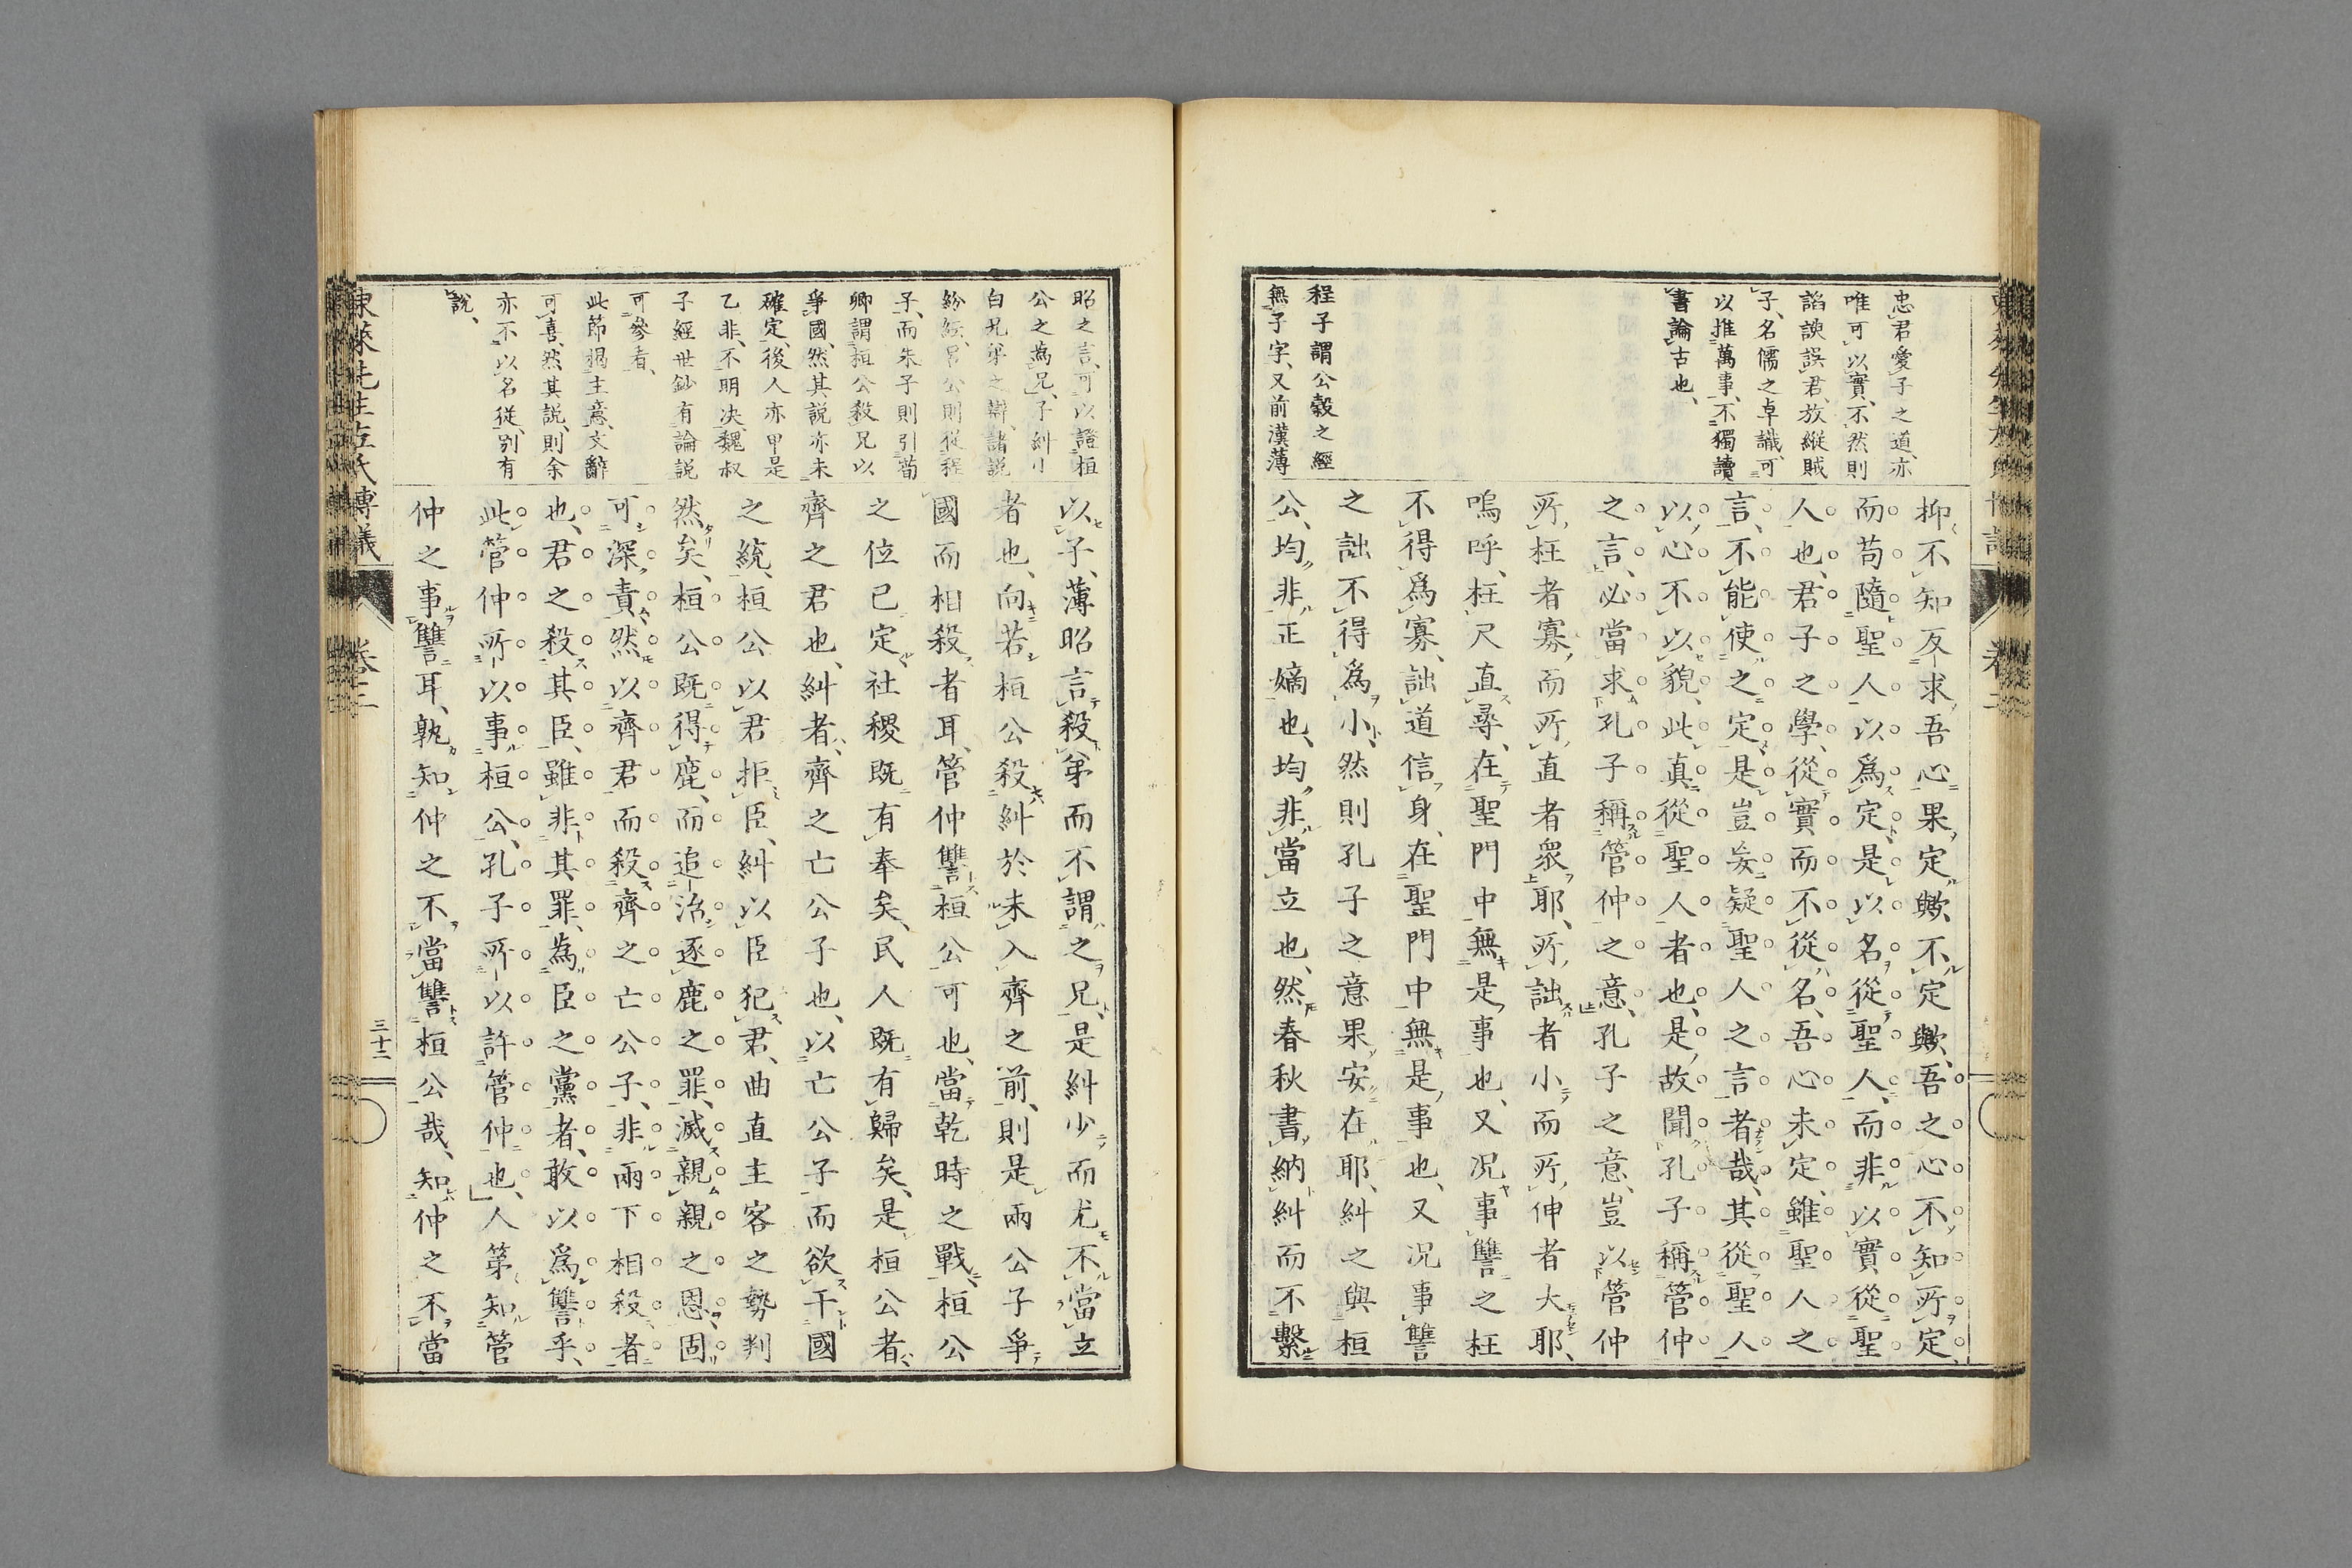 忠君愛子之道、亦
唯可以實、不然則
諂諛誤君、放縱賊
子、名儒之卓識、可
以推萬事、不獨讀
書論古也、
程子謂公穀之經
無子字、又前漢薄
抑不知反求吾心果定歟、不定歟、吾之心不知所定、
而苟隨聖人以爲定、是以名從聖人、而非以實從聖
人也、君子之學、從實而不從名、吾心未定、雖聖人之
言、不能使之定、是豈妄疑聖人之言者哉、其從聖人
以心不以貌、此眞從聖人者也、是故聞孔子稱管仲
之言、必當求孔子稱管仲之意、孔子之意、豈以管仲
所枉者寡、而所直者衆耶、所詘者小而所伸者大耶、
嗚呼、枉尺直尋、在聖門中無是事也、又況事讐之枉
不得爲寡、詘道信身、在聖門中無是事也、又況事讐
之詘不得爲小、然則孔子之意果安在耶、糾之與桓
公、均非正嫡也、均非當立也、然春秋書納糾而不繫
昭之言、可以證桓
公之爲兄、子糾小
白兄弟之辯、諸説
紛紜、呂公則從程
子、而朱子則引荀
卿謂桓公殺兄以
爭國、然其説亦未
確定、後人亦甲是
乙非、不明決、魏叔
子經世鈔有論説
可參看、
此節揭主意、文辭
可喜、然其説、則余
亦不以名從、別有
説、
以子、薄昭言殺弟而不謂之兄、是糾少而尤不當立
者也、向若桓公殺糾於未入齊之前、則是兩公子爭
國而相殺者耳、管仲讐桓公可也、當乾時之戰、桓公
之位已定、社稷既有奉矣、民人既有歸矣、是桓公者、
齊之君也、糾者、齊之亡公子也、以亡公子而欲干國
之統、桓公以君拒臣、糾以臣犯君、曲直主客之勢判
然矣、桓公既得鹿、而追治逐鹿之罪、滅親親之恩、固
可深責、然以齊君而殺齊之亡公子、非兩下相殺者
也、君之殺其臣、雖非其罪、為臣之黨者、敢以爲讐乎、
此管仲所以事桓公、孔子所以許管仲也、人第知管
仲之事讐耳、孰知仲之不當讐桓公哉、知仲之不當
東萊先生左氏博議
卷三
三十二